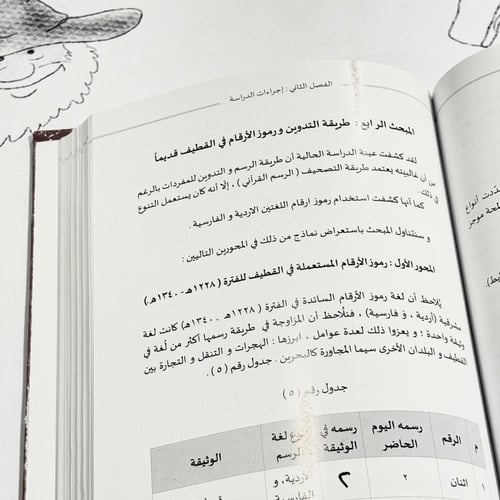 الفصل الثاني : إجراءات الدراسة
المبحث الرابع : طريقة التدوين ورموز الأرقام في القطيف قديماً
لقد كشفت عينة الدراسة الحالية أن طريقة الرسم و التدوين للمفردات بالرغم
من أن غالبيته يعتمد طريقة التصحيف ( الرسم القرآني ) ، إلّا أنه كان يستعمل التنوع
في ذلك .
كما أنها كشفت استخدام رموز ارقام اللغتين الاردية و الفارسية .
و سنتناول المبحث باستعراض نماذج من ذلك في المحورين التاليين :
المحور الأول : رموز الأرقام المستعملة في القطيف للفترة ( ١٢٢٨هـ - ١٣٤٠هـ )
يُلاحظ أن لغة رموز الأرقام السائدة في الفترة ( ١٢٢٨هـ ـ ١٣٤٠هـ ) كانت لغة
مشرقية ( أردية ، وَ فارسية ) ، فنلاحظ أن المزاوجة في طريقة رسمها أكثر من لُغة في
وثيقة واحدة ؛ و يعزوا ذلك لعدة عوامل ، ابرزها : الهجرات و التنقل و التجارة بين
القطيف و البلدان الأخرى سيما المجاورة كالبحرين . جدول رقم ( ٥ ) .
جدول رقم ( ٥ )
م الرقم رسمه اليوم الحاضر رسمه في الوثيقة لغة الرسم الوثيقة
١ اثنان ٢ ٢ الأردية، و
الفارسية
شدت أنواع
لمحة موجز